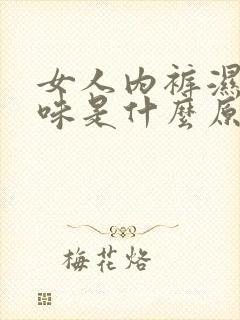 女人内裤濕
味是什麼原
梅花烙